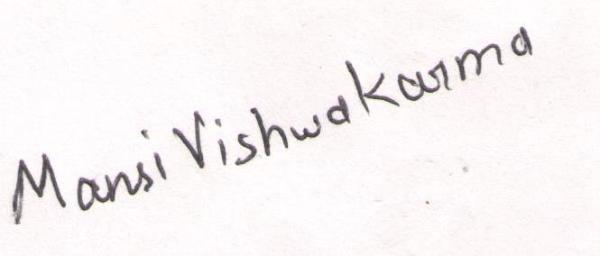 Mansi Vishwakarma